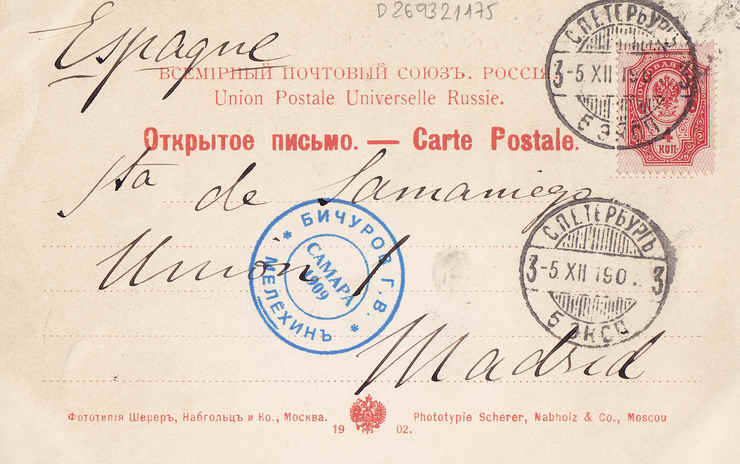 D269321175
Espagne
ВСЕМІРНЫЙ ПОЧТОВЫЙ СОЮЗЪ. РОССІЯ
Union Postale Universelle Russie.
Открытое письмо. — Carte Postale.
С.ПЕТЕРБУРГЪ
3 -5 XII 190 3
5 ЭКСП
4
КОП
Sta de Samaniego
Union 1
Madrid
* БИЧУРОВ Г.В. *
МЕЛЕХИНЪ
САМАРА
1909
С.ПЕТЕРБУРГЪ
3 -5 XII 190. 3
5 ЭКСП
Фототипія Шереръ, Набгольцъ и Ко., Москва.
Phototypie Scherer, Nabholz & Co., Moscou
19 02.